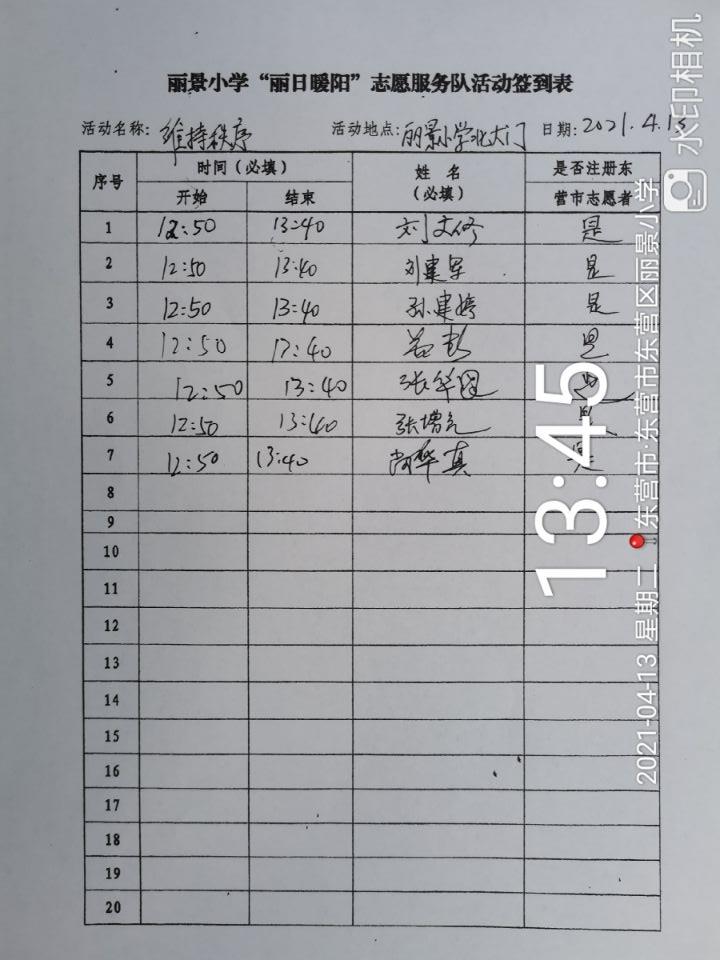 丽景小学“丽日暖阳”志愿服务队活动签到表
活动名称：维持秩序 活动地点：丽景小学北大门 日期：2021.4.13
序号 时间（必填） 姓名（必填） 是否注册东营市志愿者
开始 结束
1 12:50 13:40 刘文修 是
2 12:50 13:40 刘建军 是
3 12:50 13:40 孙建婷 是
4 12:50 13:40 是
5 12:50 13:40 张华国 是
6 12:50 13:40 张增元 是
7 12:50 13:40 尚华真 是
8
9
10
11
12
13
14
15
16
17
18
19
20
13:45
2021-04-13 星期二 东营市·东营市东营区丽景小学
水印相机